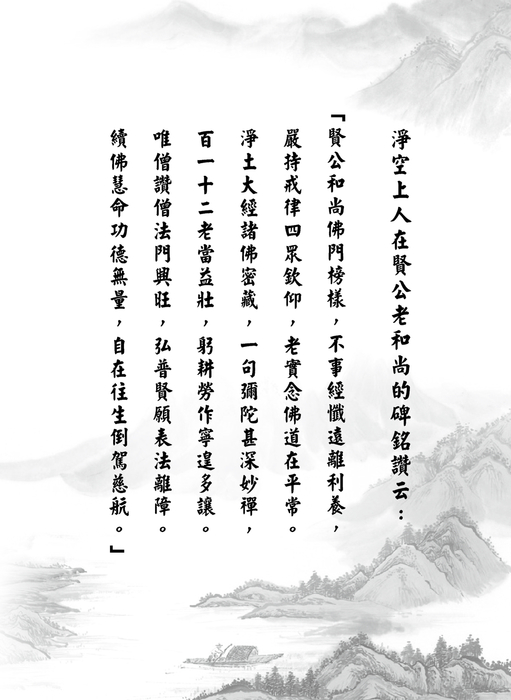 淨空上人在賢公老和尚的碑銘讚云：
「賢公和尚佛門榜樣，不事經懺遠離利養，
嚴持戒律四眾欽仰，老實念佛道在平常。
淨土大經諸佛密藏，一句彌陀甚深妙禪，
百一十二老當益壯，躬耕勞作寧遑多讓。
唯僧讚僧法門興旺，弘普賢願表法離障。
續佛慧命功德無量，自在往生倒駕慈航。」